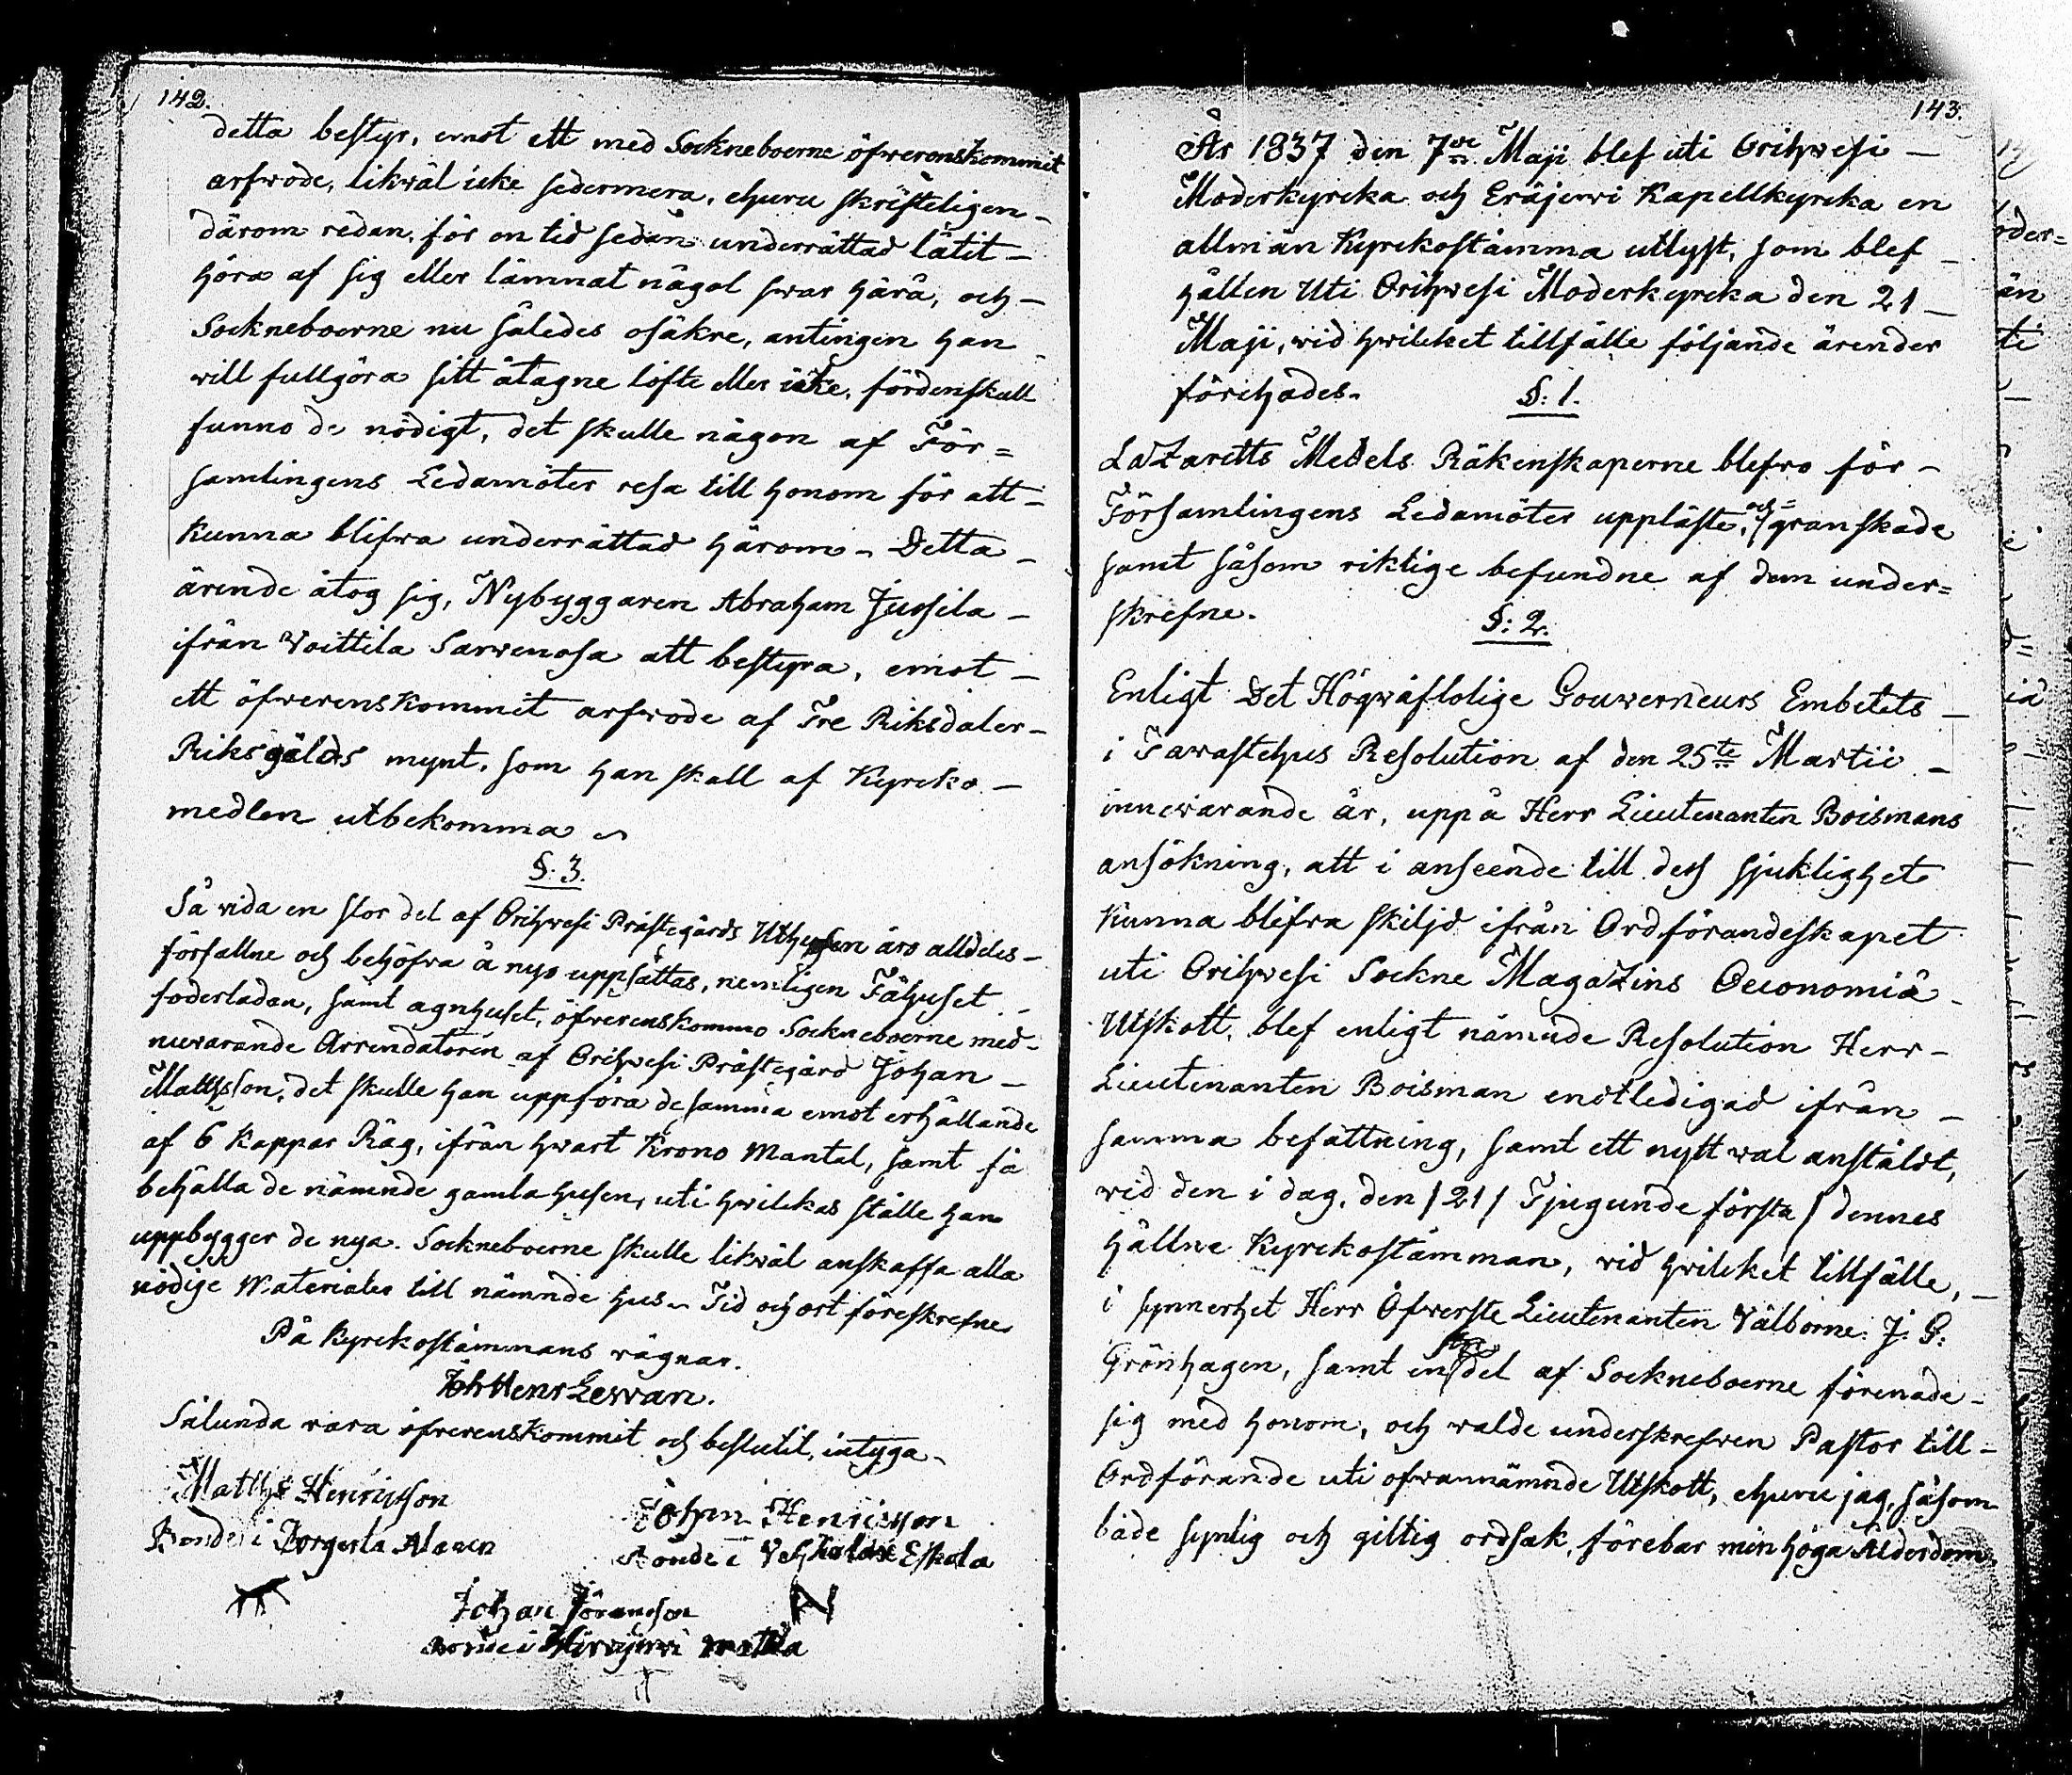 142.
detta bestyr, emot ett med Sockneboerne öfwerenskommit
arfwode, likwäl icke sedermera, ehuru skrifteligen-
därom redan, för en tid sedan underrättad låtit-
höra af sig eller lämnat någol swar härå, och-
Sockneboerne nu således osäkre, antingen han
will fullgöra sitt åtagne löfte eller icke, fördenskull
funno de nödigt, det skulle någon af För=
samlingens Ledamöter resa till honom för att-
kunna blifwa underrättad härom- Detta-
ärende åtog sig, Nybyggaren Abraham Jussila-
ifrån Voittila Sarwenosa att bestyra, emot-
ett öfwerenskommit arfwode af Tre Riksdaler-
Riksgälds mynt, som han skall af Kyrcko-
medlen utbekomma
§: 3.
Så vida en stor del af Orihwesi Prästegårds Uthusen äro alldeles-
förfallne och behöfwa å nyo uppsättas, nemligen Fähuset-
foderladan, samt agnhuset, öfwerenskommo Sockneboerne med-
nuwarande Arrendatoren af Orihwesi Prästegård Johan-
Mattsson, det skulle han uppföra desamma emot erhållande
af 6 kappar Råg, ifrån hwart Krono Mantal, samt få
behålla de nämnde gamla husen, uti hwilckas ställe han
uppbygger de nya. Sockneboerne skulle likwäl anskaffa alla
nödige Materialer till nämnde hus. Tid och ort föreskrefne
På Kyrckostämmans wägnar.
Joh Henr Lewan.
Sålunda wara öfwerenskommit och beslutit, intyga-
Matths Henricsson
Bonde i Alanen
Johan Henricsson
Bonde i Eskola
Johan Göransson
N
Bonde i Hirwijerwi Mattila
143.
År 1837 den 7de Maji blef uti Orihwesi-
Moderkyrcka och Eräjerwi Kapellkyrcka en
allmän Kyrckostämma utlyst, som blef-
hållen Uti Orihwesi Moderkyrcka den 21-
Maji, wid hwilcket tillfälle följande ärender
förehades.
§: 1.
Lazaretts Medels Räkenskaperne blefwo för-
Församlingens Ledamöter uppläste, och granskade
samt såsom riktige befundne af dem under=
skrefne.
§: 2.
Enligt Det Högwäflolige Gouwerneurs Embetets-
i Tawastehus Resolution af den 25te Martii-
innewarande år, uppå Herr Lieutenanten Boismans
ansökning, att i anseende till dess sjuklighet
kunna blifwa skiljd ifrån Ordförandeskapet
uti Orihwesi Sockne Magazins Oeconomiä-
Utskott, blef enligt nämnde Resolution Herr-
Lieutenanten Boisman endtledigad ifrån-
samma befattning, samt ett nytt wal anstäldt,
wid den i dag, den / 21 / Tjugunde första / dennes
hållne Kyrckostämman, wid hwilcket tillfälle,-
i synnerhet Herr Öfwerste Lieutenanten Välborne J: G:
Grönhagen, samt en del af Sockneboerne förenade-
sig med honom, och walde underskrefwen Pastor till-
Ordförande uti ofwannämnde Utskott, ehuru jag, såsom
både synlig och giltig ordsak, förebar min höga Ålderdom,